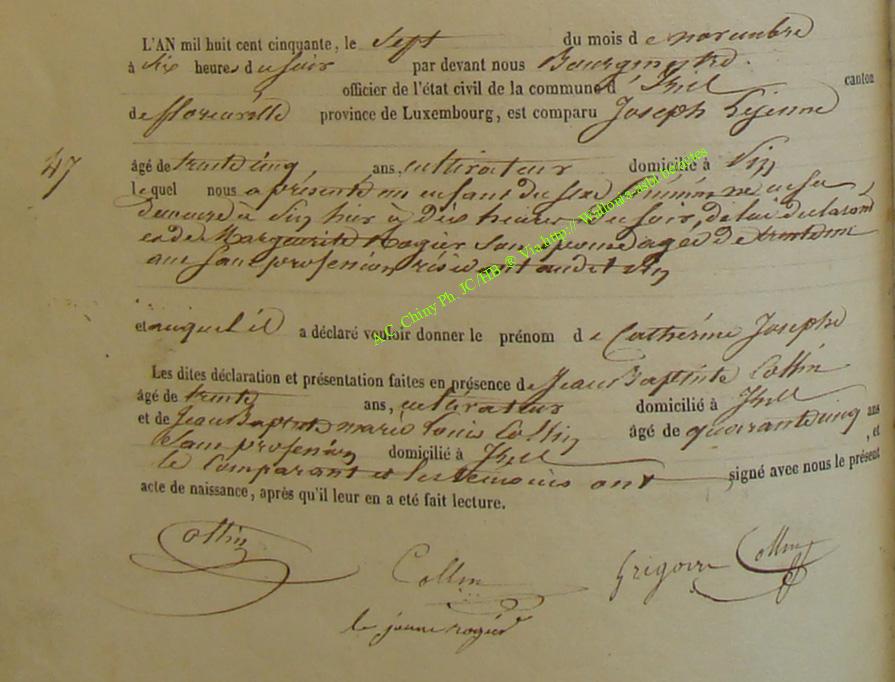 L'AN mil huit cent cinquante, le sept du mois de novembre
à six heures du soir par devant nous Bourgmestre
officier de l'état civil de la commune d'Izel canton
de florenville province de Luxembourg, est comparu Joseph Lejeune
47
âgé de trente cinq ans, cultivateur domicilié à
lequel nous a présenté un enfant du sexe féminin ne en sa
demeure à hier à dix heures du soir, de lui declarant
et de Marguerite Rogier son epouse agée de trente
ans sans profession, audit
et auquel il a déclaré vouloir donner le prénom de Catherine Josephe
Les dites déclaration et présentation faites en présence de Jean Baptiste Collin
âgé de trente ans, cultivateur domicilié à Izel
et de Jean Baptiste marie Louis Collin âgé de quarante cinq ans
sans profession domicilié à Izel , et
le comparant et les temoins ont signé avec nous le présent
acte de naissance, après qu'il leur en a eté fait lecture.
Collin
Collin
Grégoire Collin
le jeune rogier
A.C. Chiny Ph. JC /HB ® Via http:// Wallonia-asbl be/actes